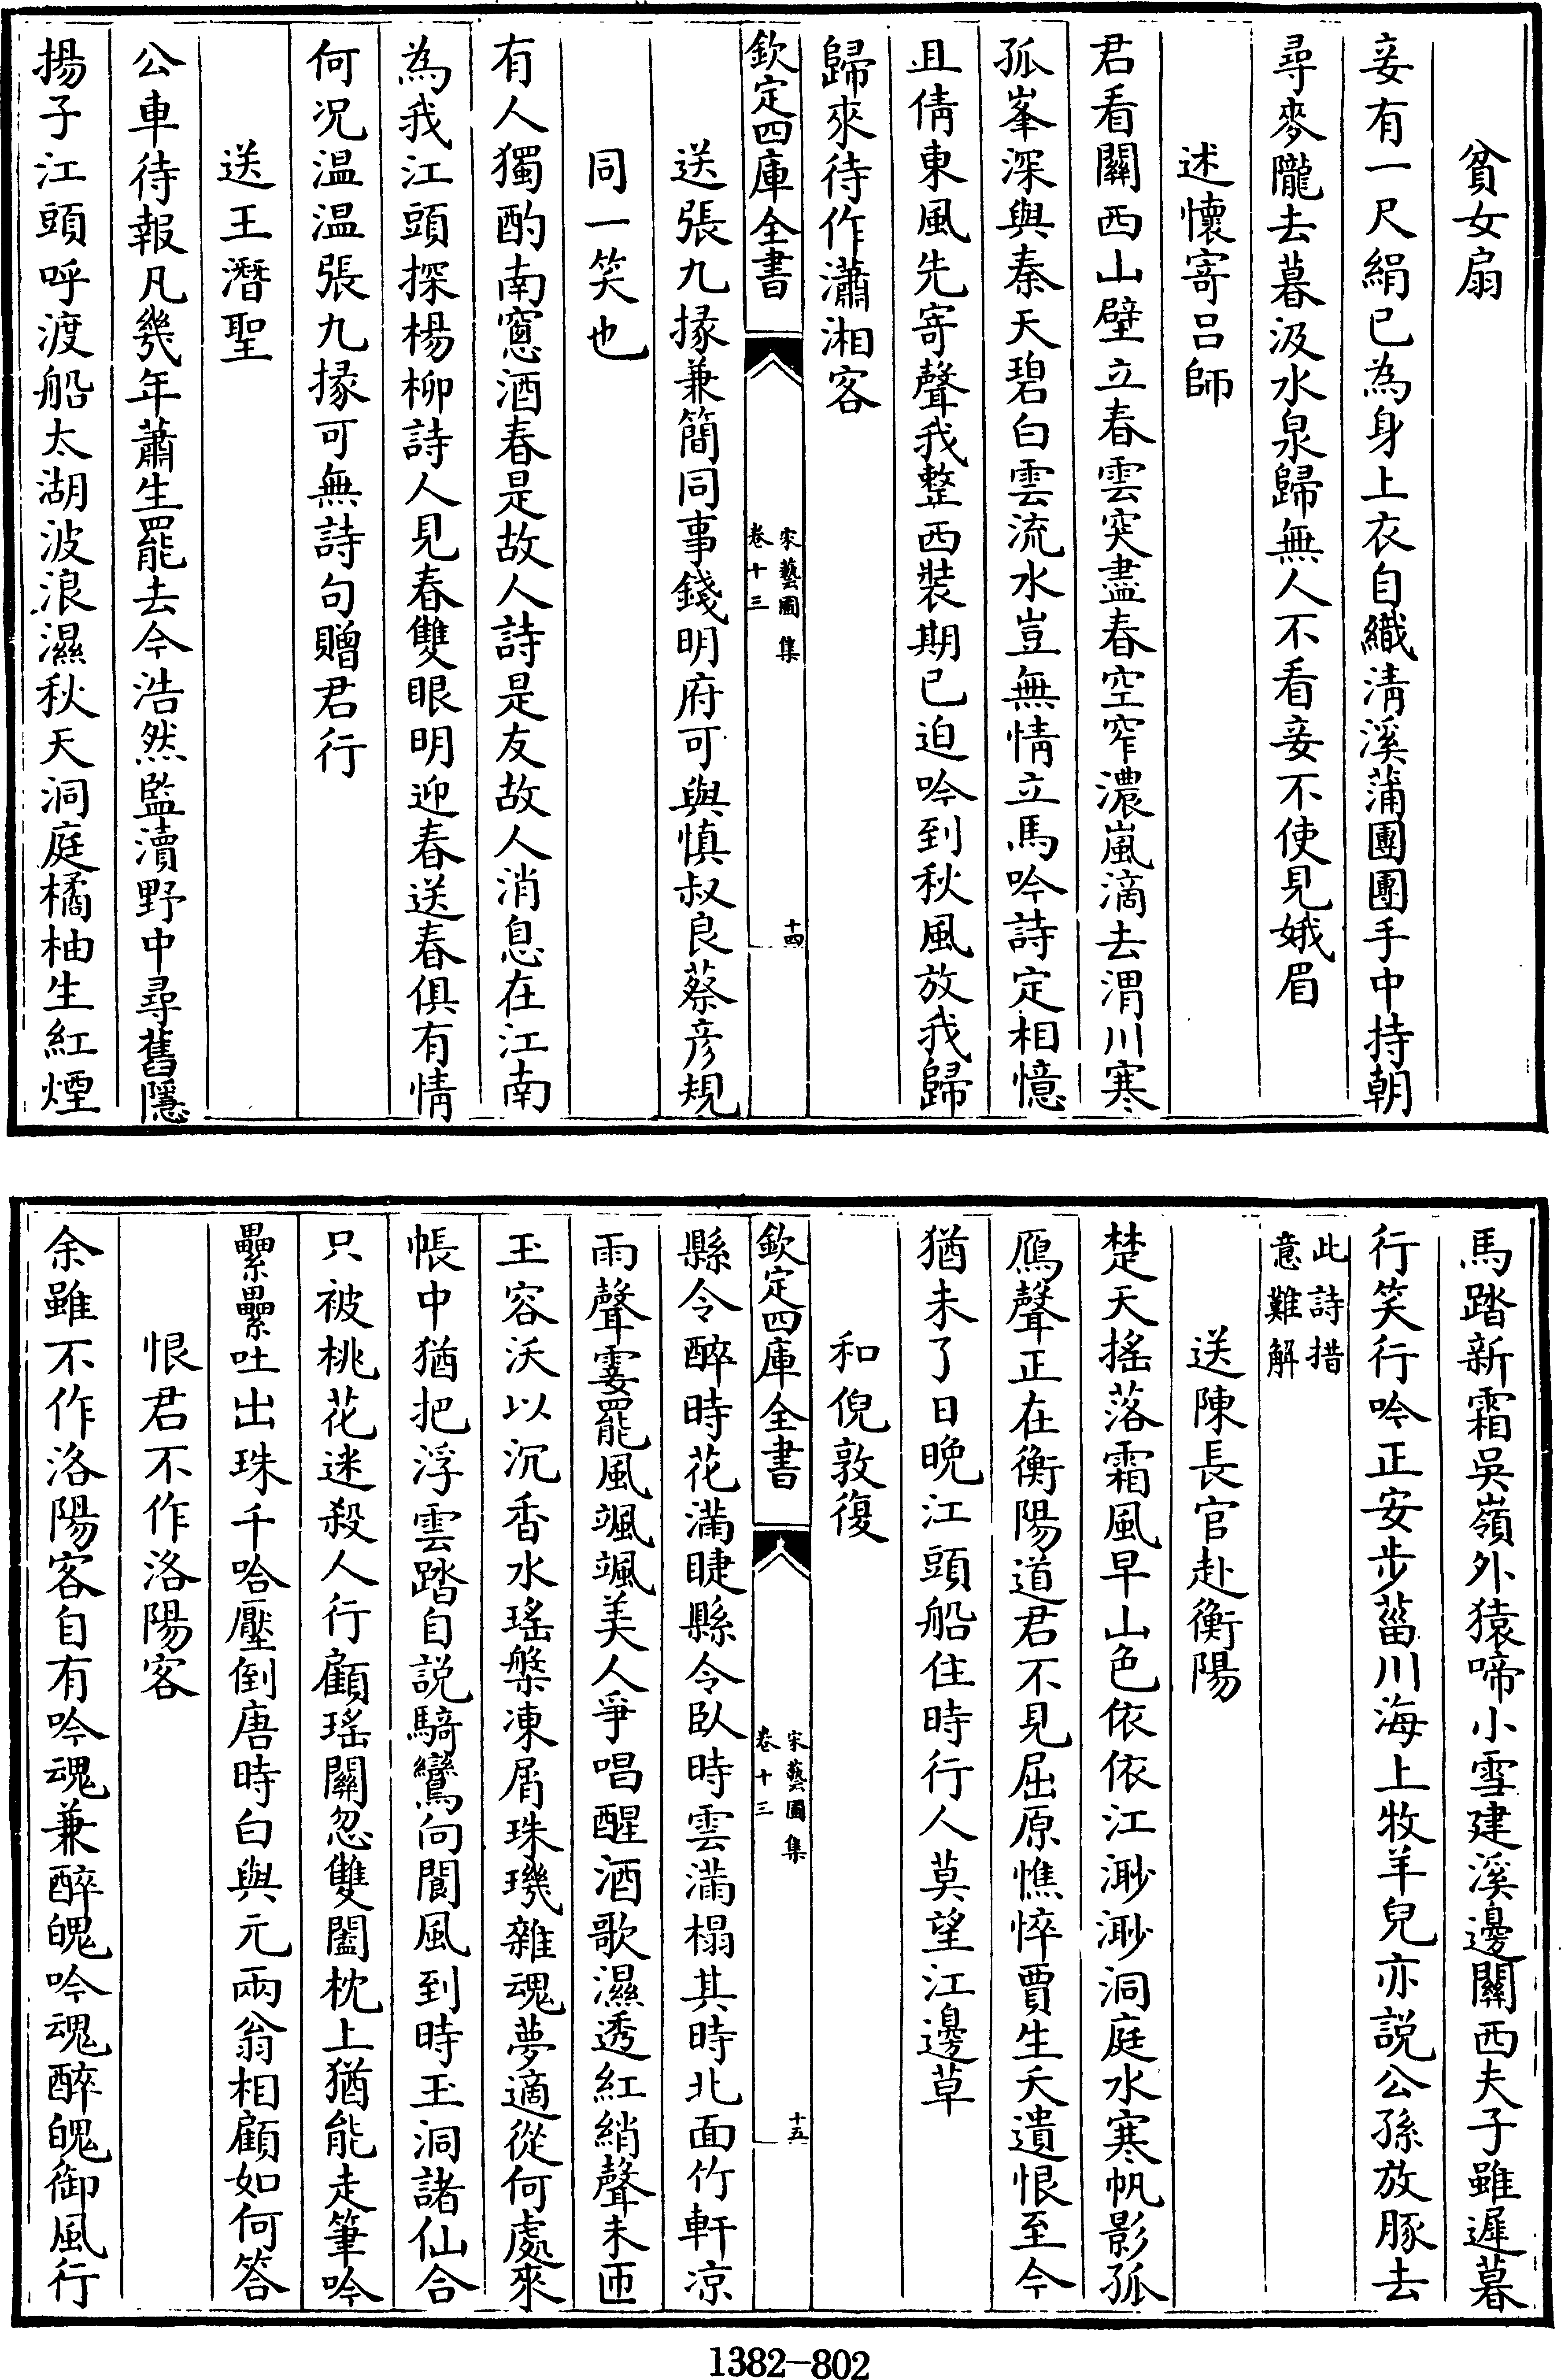 貧女扇
妾有一尺絹已為身上衣自織清溪蒲團團手中持朝
尋麥隴去暮汲水泉歸無人不看妾不使見娥眉
述懷寄呂師
君看關西山壁立春雲突盡春空窄濃嵐滴去渭川寒
孤峯深與秦天碧白雲流水豈無情立馬吟詩定相憶
且倩東風先寄聲我整西裝期已迫吟到秋風放我歸
歸來待作瀟湘客
欽定四庫全書
宋藝圃集
卷十三
十四
送張九掾兼簡同事錢明府可與慎叔良蔡彥規
同一笑也
有人獨酌南窻酒春是故人詩是友故人消息在江南
為我江頭探楊柳詩人見春雙眼明迎春送春俱有情
何况温温張九掾可無詩句贈君行
送王潛聖
公車待報凡幾年蕭生罷去今浩然監瀆野中尋舊隱
揚子江頭呼渡船太湖波浪濕秋天洞庭橘柚生紅煙
馬踏新霜吳嶺外猿啼小雪建溪邊關西夫子雖遲暮
行笑行吟正安步菑川海上牧羊兒亦説公孫放豚去
此詩措
意難解
送陳長官赴衡陽
楚天搖落霜風早山色依依江渺渺洞庭水寒帆影孤
鴈聲正在衡陽道君不見屈原憔悴賈生夭遺恨至今
猶未了日晚江頭船住時行人莫望江邊草
和倪敦復
欽定四庫全書
宋藝圃集
卷十三
十五
縣令醉時花滿睫縣令臥時雲滿榻其時北面竹軒凉
雨聲霎罷風颯颯美人爭唱醒酒歌濕透紅綃聲未匝
玉容沃以沉香水瑤槃凍屑珠璣雜魂夢適從何處來
帳中猶把浮雲踏自説騎鸞向閬風到時玉洞諸仙合
只被桃花迷殺人行顧瑤關忽雙闔枕上猶能走筆吟
纍纍吐出珠千哈壓倒唐時白與元兩翁相顧如何答
恨君不作洛陽客
余雖不作洛陽客自有吟魂兼醉魄吟魂醉魄御風行
1382—802